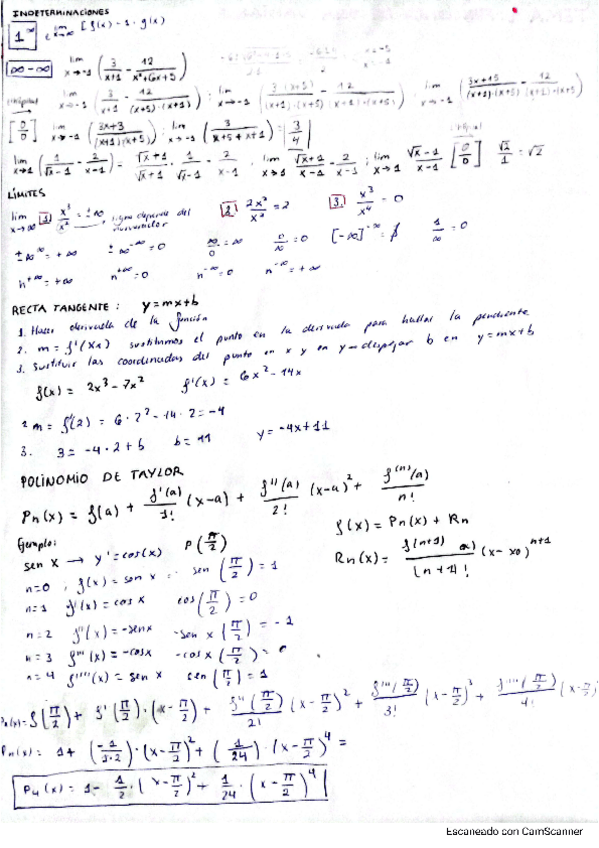 INDETERMINACIONES
1^∞ e^{lim x→∞ [f(x)-1·g(x)
∞-∞ lim x→-1 (3/(x+1) - 12/(x²+6x+5))
lim x→-1 (3/(x+1) - 12/((x+5)·(x+1))) ; lim x→-1 (3·(x+5)/((x+1)·(x+5)) - 12/((x+1)·(x+5))) ; lim x→-1 (3x+15/((x+1)·(x+5)) - 12/((x+1)·(x+5)))
[0/0] lim x→-1 (3x+3/((x+1)(x+5))) ; lim x→-1 (3/(x+5+x+1)) = 3/4
lim x→1 (1/(√x-1) - 2/(x-1)) = √x+1/√x+1 · 1/√x-1 - 2/x-1 ; lim x→1 √x+1/x-1 - 2/x-1 ; lim x→1 √x-1/x-1 [0/0] √2/1 = √2
LÍMITES
lim x→∞ 1. x³/x² = ±∞ signo depende del 2. 2x²/x² = 2 3. x³/x⁴ = 0
numerador
±∞^{+∞} = +∞ ±∞^{-∞} = 0 ∞/0 = ∞ 0/∞ = 0 [-∞]^{-∞} = ∄ 1/∞ = 0
n^{+∞} = +∞ n^{+∞} = 0 n^{-∞} = 0 n^{-∞} = +∞
RECTA TANGENTE : y=mx+b
1. Hacer derivada de la función
2. m = f'(x1) sustituimos el punto en la derivada para hallar la pendiente
3. Sustituir las coordenadas del punto en x y en y → despejar b en y=mx+b
f(x) = 2x³-7x² f'(x) = 6x²-14x
2 m = f'(2) = 6·2²-14·2 = -4
3. 3 = -4·2+b b = 11 y = -4x+11
POLINOMIO DE TAYLOR
Pn(x) = f(a) + f'(a)/1! (x-a) + f''(a)/2! (x-a)² + f^{(n)}(a)/n!
f(x) = Pn(x) + Rn
Ejemplo:
sen x → y' = cos(x) P(π/2)
Rn(x) = f^{(n+1)} a)/(n+1)! (x-x0)^{n+1}
n=0 , f(x) = sen x = sen (π/2) = 1
n=1 f'(x) = cos x cos(π/2) = 0
n=2 f''(x) = -senx -sen x (π/2) = -1
n=3 f'''(x) = -cosx -cos x (π/2) = 0
n=4 f''''(x) = sen x sen (π/2) = 1
Pn(x) = f(π/2) + f'(π/2)·(x-π/2) + f''(π/2)/2! (x-π/2)² + f'''(π/2)/3! (x-π/2)³ + f''''(π/2)/4! (x-π/2)
Pn(x) = 1+ (-1/1·2)·(x-π/2)² + (1/24)·(x-π/2)⁴ =
P4(x) = 1- 1/2·(x-π/2)² + 1/24·(x-π/2)⁴
Escaneado con CamScanner